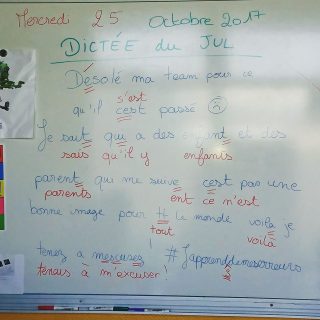 Mercredi 25 Octobre 2017
DICTÉE du JUL
Désolé ma team pour ce
s'est
qu'il cest passé
Je sait qui a des enfant et des
sais qu'il y enfants
parent qui me suive cest pas une
parents ent ce n'est
bonne image pour tt le monde voila je
tout voilà
tenez a mescusez ! #Japprenddemeserreurs
tenais à m'excuser! s